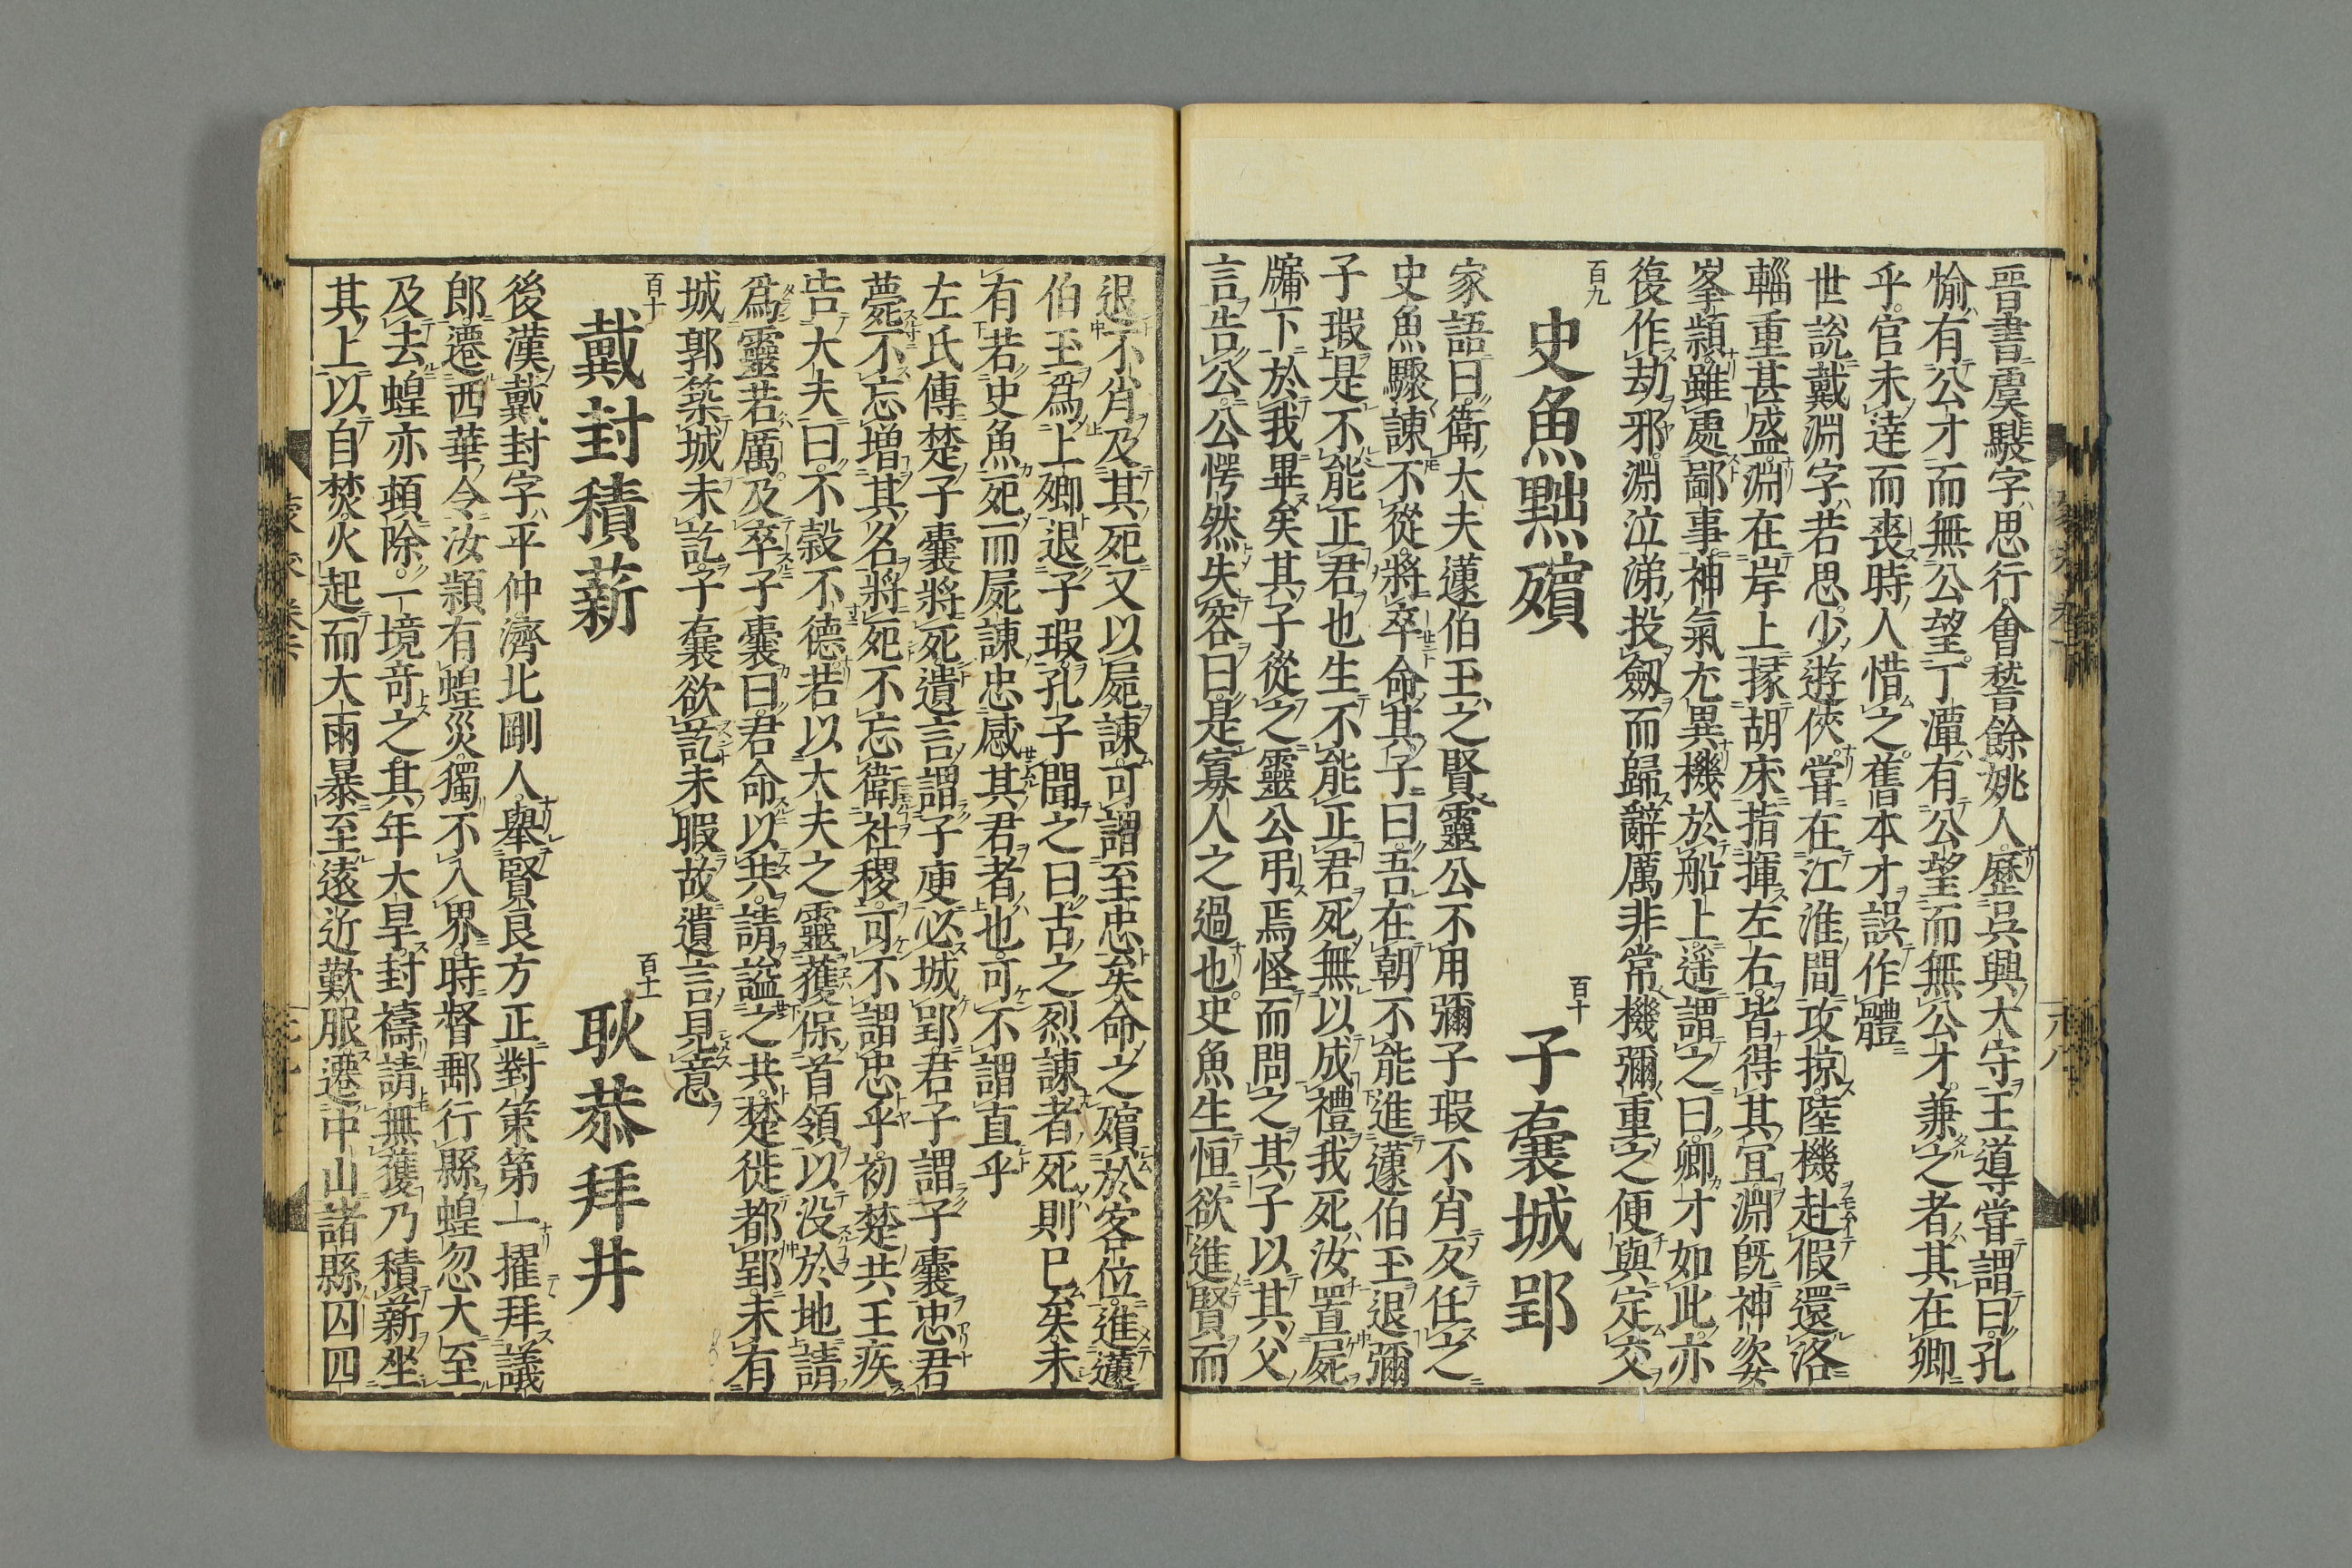 晉書虞䮓字思行會嵇餘姚人歷吳興大守王導甞謂曰孔
愉有公才而無公望丁潭有公望而無公才兼之者其在卿
乎官未達而喪時人惜之舊本才誤作體
世說戴淵字若思少遊俠甞在江淮間攻掠陸機赴假還洛
輜重甚盛淵在岸上據胡床指揮左右皆得其宜淵既神姿
峯頴雖處鄙事神氣尤異機於船上遥謂之曰卿才如此亦
復作劫邪淵泣涕投劒而歸辭厲非常機彌重之便與定交
百九
史魚黜殯
百十
子囊城郢
家語曰衛大夫蘧伯玉之賢靈公不用彌子瑕不肖反任之
史魚驟諫不從將卒命其子曰吾在朝不能進蘧伯玉退彌
子瑕是不能正君也生不能正君死無以成禮我死汝置屍
牖下於我畢矣其子從之靈公弔焉怪而問之其子以其父
言告公公愕然失容曰是寡人之過也史魚生恒欲進賢而
退不肖及其死又以屍諫可謂至忠矣命之殯於客位進蘧
伯玉爲上卿退子瑕孔子聞之曰古之烈諫者死則已矣未
有若史魚死而屍諫忠感其君者也可不謂直乎
左氏傳楚子囊將死遺言謂子庚必城郢君子謂子囊忠君
薨不忘增其名將死不忘衛社稷可不謂忠乎初楚共王疾
告大夫曰不穀不德若以大夫之靈獲保首領以没於地請
爲靈若厲及卒子囊曰君命以共請謚之共楚徙都郢未有
城郭築城未訖子囊欲訖未暇故遺言見意
百十
戴封積薪
百十一
耿恭拜井
後漢戴封字平仲濟北剛人舉賢良方正對策第一擢拜議
郎遷西華令汝頴有蝗災獨不入界時督郵行縣蝗忽大至
及去蝗亦頓除一境奇之其年大旱封禱請無獲乃積薪坐
其上以自焚火起而大雨暴至遠近歎服遷中山諸縣囚四